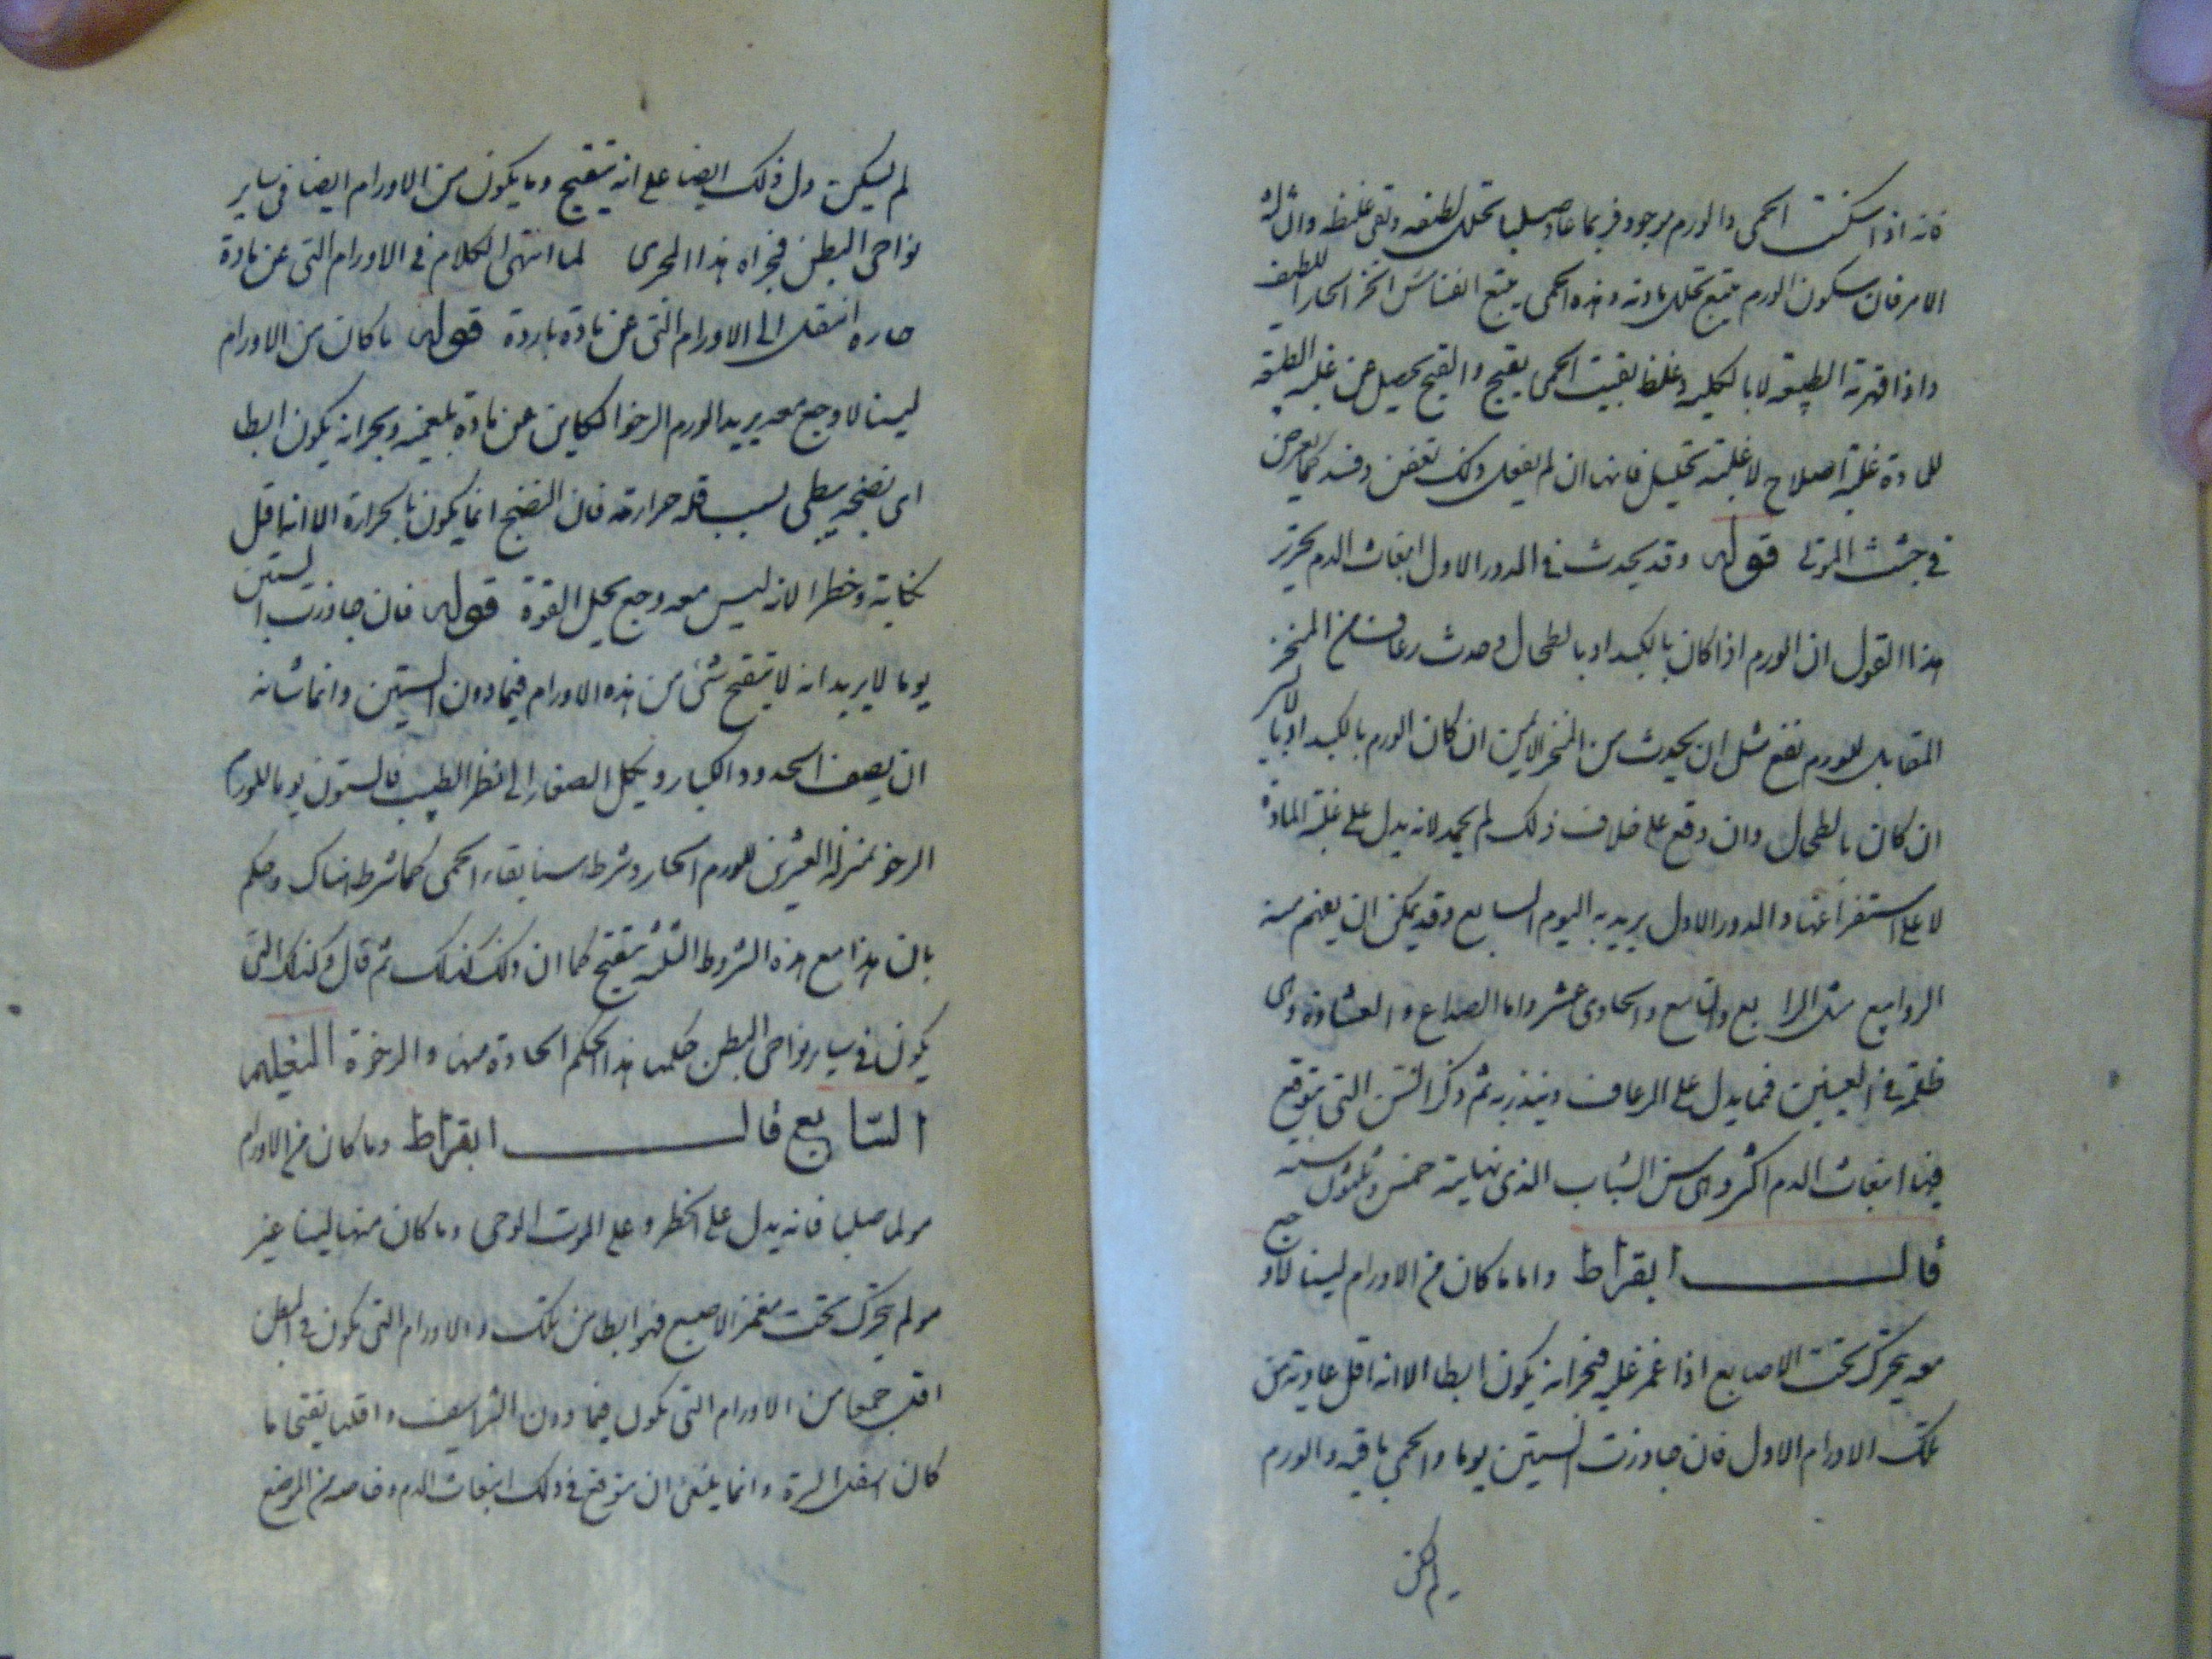 فانه اذا سكنت الحمى والورم موجود فربما عاد صلبا بتحلل لطيفه وبقى غليظه واثر له
الامر فان سكون الورم يتبع تحلل مادته وهذه الحمى يتبع انفشاش البخار الحار اللطيف
واذا قهرته الطبيعة لا بالكلية وغلظ بقيت الحمى بقيح والقيح يحصل عن غلبة الطبيعة
للمادة غلبة اصلاح لا غلبة تحليل فانها ان لم يفعل ذلك تعفن وفسد كما يعرض
فى جثث الموتى قوله وقد يحدث فى الدور الاول انبعاث الدم تحرير
هذا القول ان الورم اذا كان بالكبد او بالطحال وحدث رعاف من المنخر
المقابل للورم نفع مثل ان يحدث من المنخر الايمن ان كان الورم بالكبد او بالايسر
ان كان بالطحال وان وقع على خلاف ذلك لم يحمد لانه يدل على غلبة المادة
لا على استفراغها والدور الاول يريد به اليوم السابع وقد يمكن ان يفهم منه
الروابيع مثل الرابع والتاسع والحادى عشر واما الصداع والغشاوة وهى
ظلمة فى العينين فمما يدل على الرعاف وينذر به ثم ذكر السن التى يتوقع
فيها انبعاث الدم اكثر وهى سن الشباب الذى نهايته خمس وثلثون سنة
قال ابقراط واما ما كان من الاورام لينا لا وجع
معه يتحرك تحت الاصابع اذا غمز عليه فبحرانه يكون ابطا الا انه اقل عادية من
تلك الاورام الاول فان جاوزت الستين يوما والحمى باقية والورم
لم يسكن
لم يسكن دل ذلك ايضا على انه يتقيح وما يكون من الاورام ايضا فى ساير
نواحى البطن فمجراه هذا المجرى لما انتهى الكلام فى الاورام التى عن مادة
حاره انتقل الى الاورام التى عن مادة باردة قوله ما كان من الاورام
لينا لا وجع معه يريد الورم الرخو الكاين عن مادة بلغمية وبحرانه يكون ابطا
اى نضجه يبطى بسبب قلة حرارته فان النضج انما يكون بالحرارة الا انه اقل
نكاية وخطرا لانه ليس معه وجع يحل القوة قوله فان جاوزت الستين
يوما لا يريد انه لا يتقيح شئ من هذه الاورام فيما دون الستين وانما شانه
ان يصف الحدود الكبار ويكل الصغار الى نظر الطبيب فالستون يوما للورم
الرخو بمنزلة العشرين للورم الحار وشرط هنا بقاء الحمى كما شرط هناك وحكم
بان هذا مع هذه الشروط الثلثة يتقيح كما ان ذلك كذلك ثم قال وكذلك التى
يكون فى ساير نواحى البطن حكمها هذا الحكم الحادة منها والرخوة التعليم
السابع قال ابقراط وما كان من الاورام
مولما صلبا فانه يدل على الخطر وعلى الموت الوحى وما كان منها لينا غير
مولم يتحرك تحت مغمز الاصبع فهو ابطا من تلك والاورام التى تكون فى البطن
اقل جمعا من الاورام التى تكون فيما دون الشراسيف واقلها تقيحا ما
كان اسفل السرة وانما ينبغى ان يتوقع فى ذلك انبعاث الدم وخاصة من المواضع